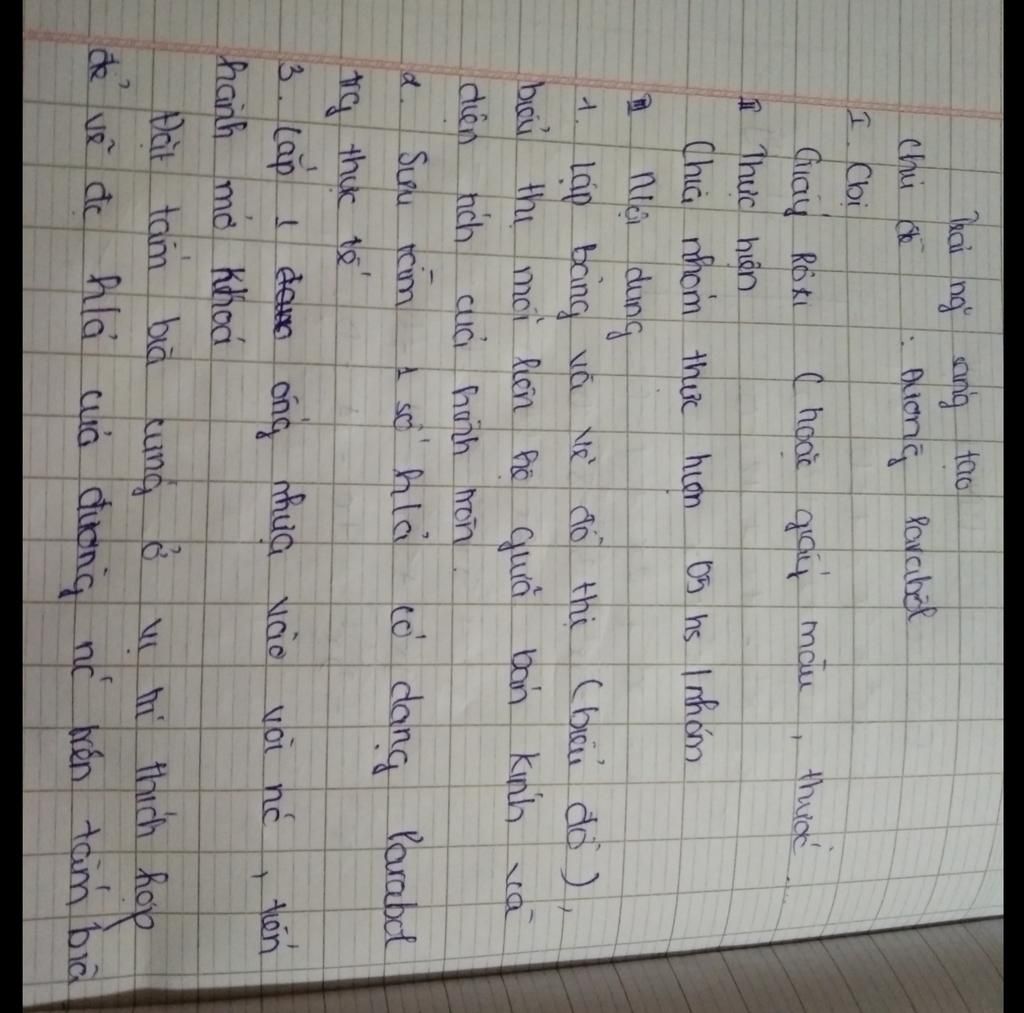 Trải ng sáng tạo
Chủ đề : Đường Parabol
I. Cbị
Giấy Rôki (hoặc giấy màu, thước...
II Thực hiện
Chia nhóm thực hiện 05 hs / nhóm
III Nội dung
1. Lập bảng và vẽ đồ thị (biểu đồ),
biểu thị mối liên hệ giữa bán kính và
diện tích của hình tròn.
2. Sưu tầm 1 số h/ả có dạng Parabol
trg thực tế
3. Lắp 1 ống nhựa vào vòi nc, tiến
hành mở khoá
Đặt tấm bìa cứng ở vị trí thích hợp
để vẽ đc h/ả của đường nc trên tấm bìa